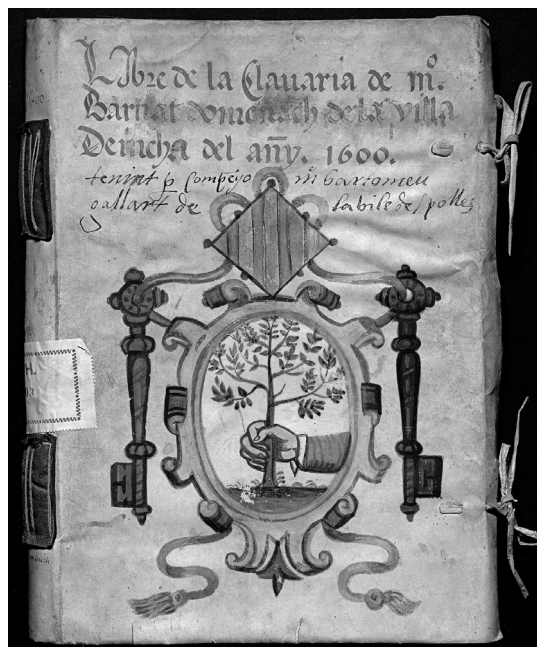 Libre de la Clauaria de mº.
Barnat domenach de la villa
Deincha del añy. 1600.
tenint p compeyo mº bartomeu
oallart de la bile de
H.